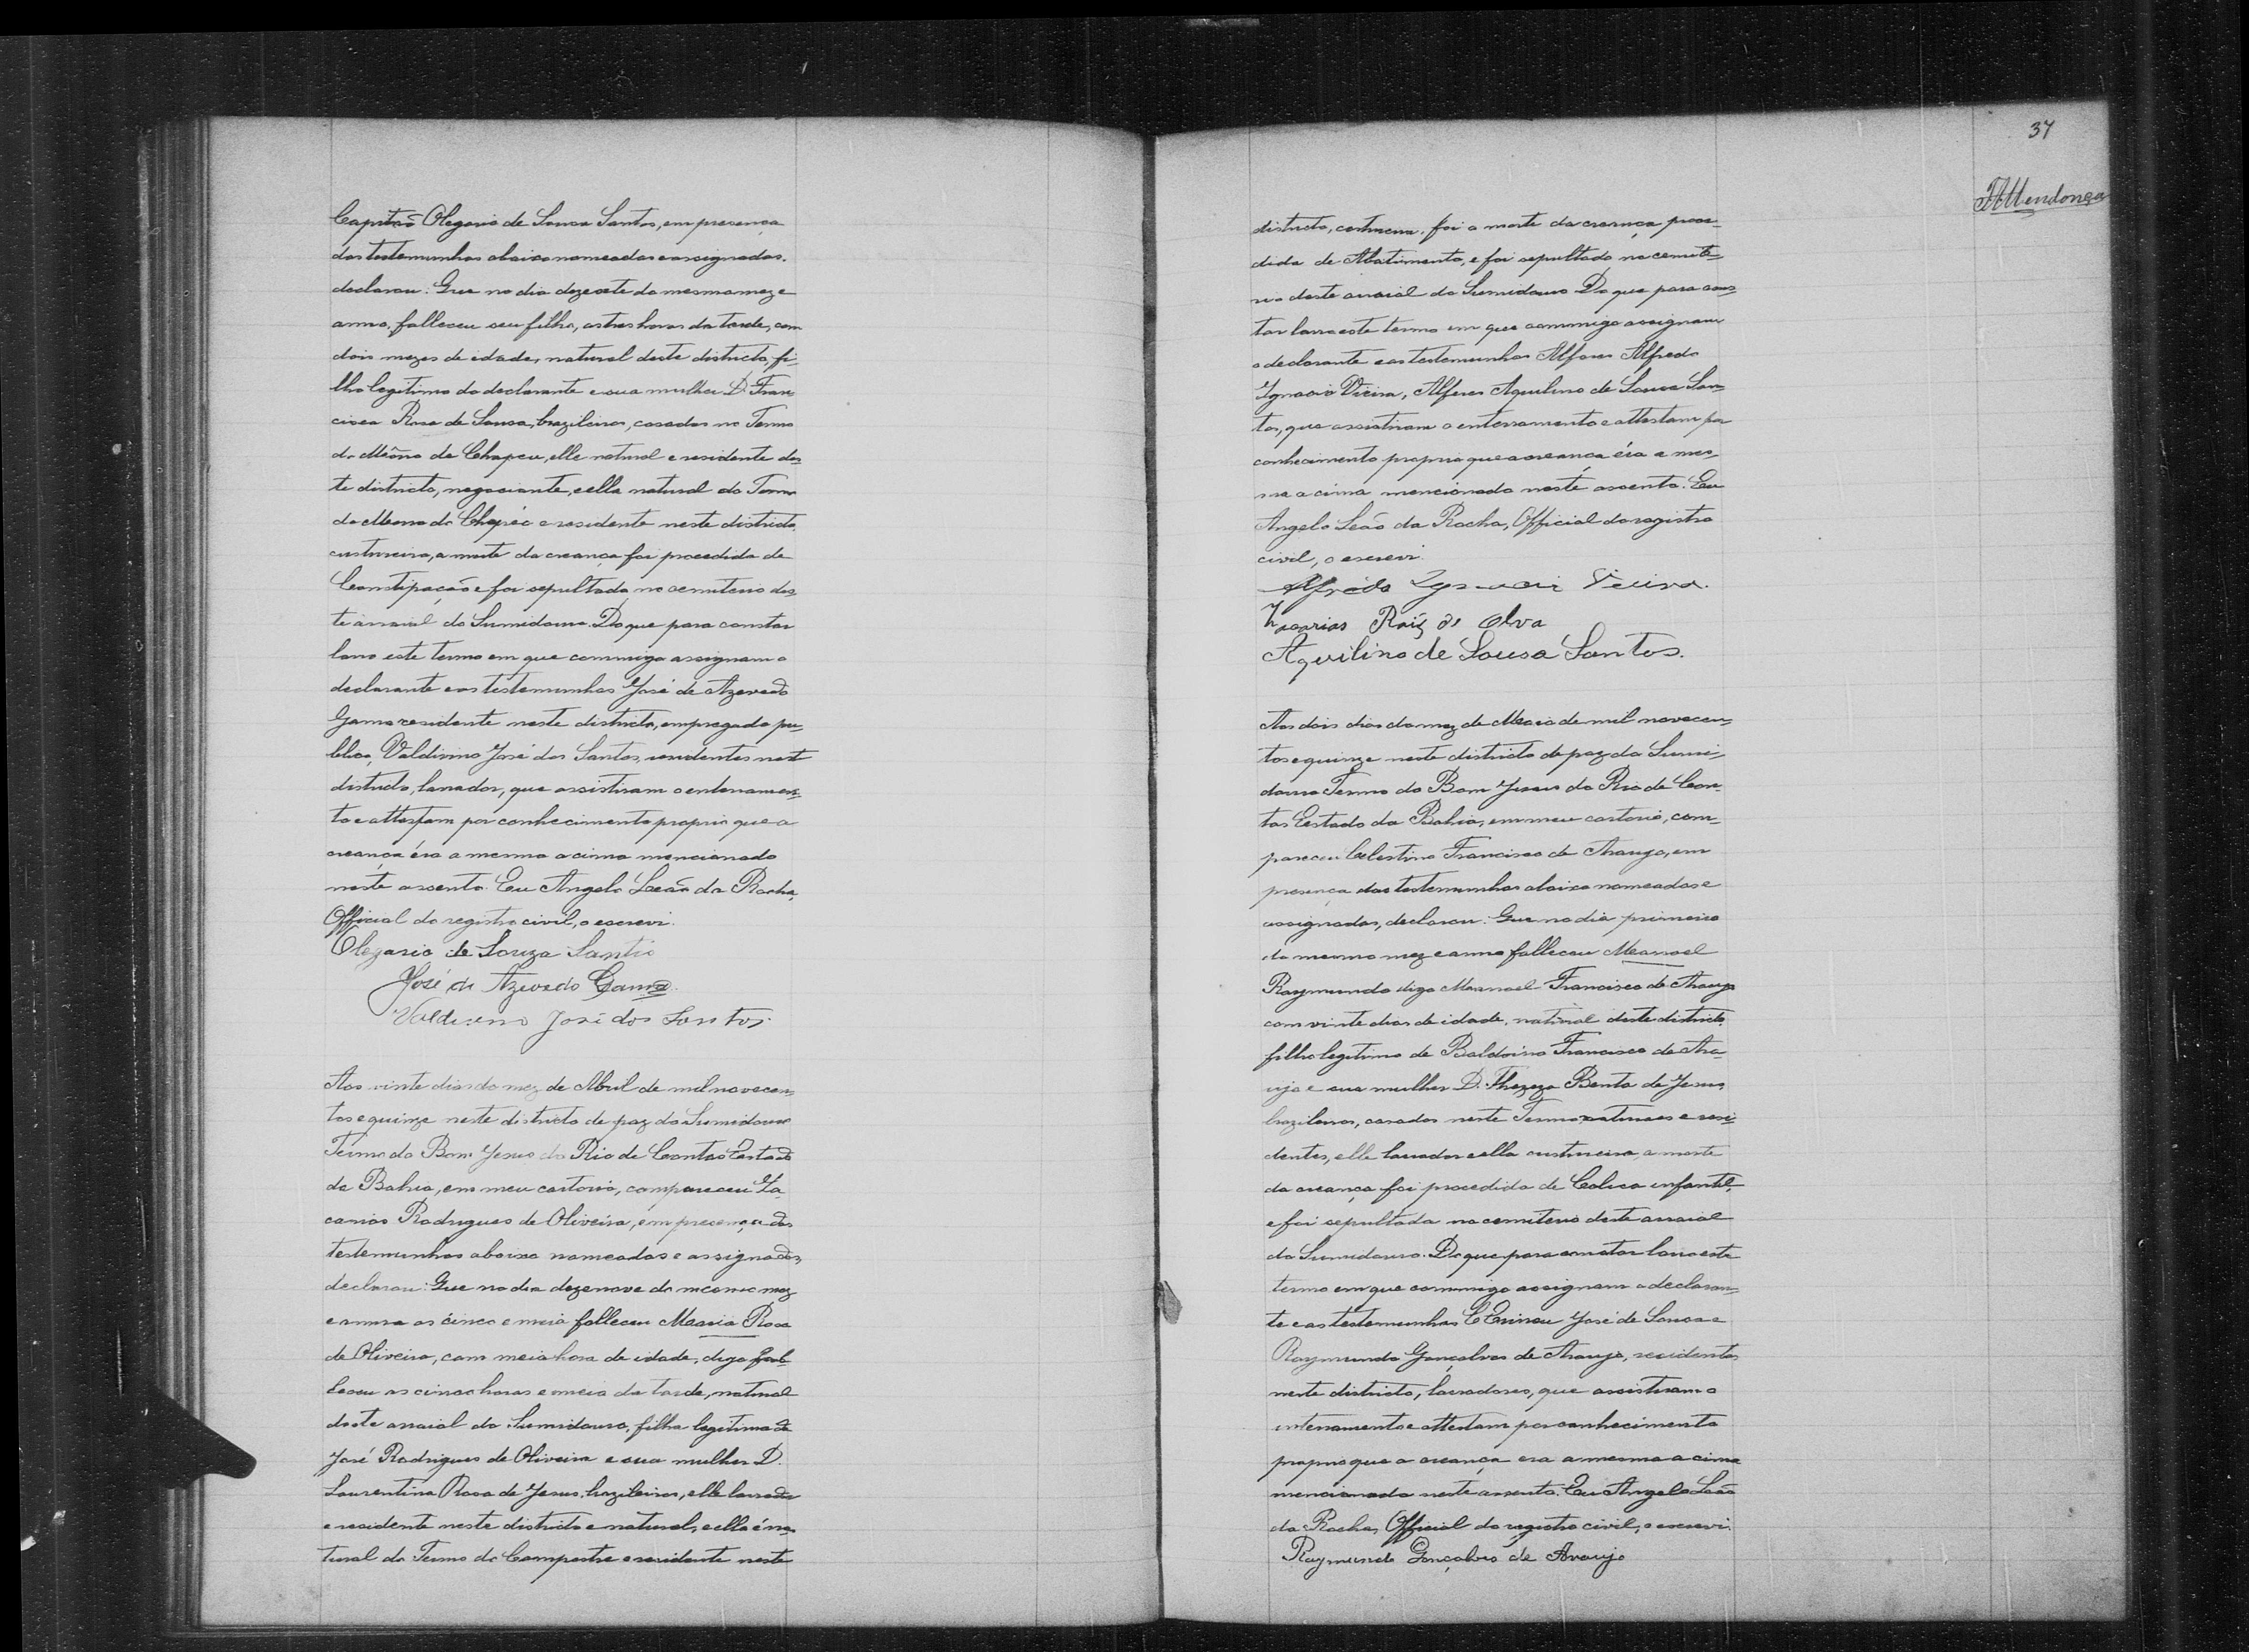 Capitão Olegario de Sousa Santos, em presença
das testemunhas abaixo nomeadas e assignadas,
declarou: Que no dia dezesete do mesmo mez e
anno, falleceu seu filho, as tres horas da tarde, com
dois mezes de idade, natural deste districto, fi-
lho legitimo do declarante e sua mulher D. Fran-
cisca Rosa de Sousa, brazileiros, casados no Termo
do Môrro do Chapeu, elle natural e residente des-
te districto, negociante, e ella natural do Termo
do Morro do Chapéo e residente neste districto,
custureira, a morte da creança foi procedida de
Constipação e foi sepultada no cemiterio des-
te arraial do Sumidouro. Do que para constar
lavro este termo em que commigo assignam o
declarante e as testemunhas José de Azevedo
Gama residente neste districto, empregado pu-
blico, Valdivino José dos Santos, residentes neste
districto, lavrador, que assistiram o enterramen-
to e attestam por conhecimento proprio que a
creança éra a mesma acima mencionado
neste assento. Eu Angelo Leão da Rocha,
Official do registro civil, o escrevi.
Olegario de Souza Santos
José de Azevedo Gama
Valdivino José dos Santos
Aos vinte dias do mez de Abril de mil novecen-
tos e quinze neste districto de paz do Sumidouro
Termo do Bom Jesus do Rio de Contas Estado
da Bahia, em meu cartorio, compareceu Za-
carias Rodrigues de Oliveira, em presença das
testemunhas abaixo nomeadas e assignadas,
declarou: Que no dia dezenove do mesmo mez
e anno as cinco e meia falleceu Maria Rosa
de Oliveira, com meia hora de idade, digo fal-
leceu as cinco horas e meia da tarde, natural
deste arraial do Sumidouro, filha legitima de
José Rodrigues de Oliveira e sua mulher D.
Laurentina Rosa de Jesus, brazileiros, elle lavrador
e residente neste districto e natural, e ella é na-
tural do Termo do Campestre e residente neste
37
FAMendonça
districto, custureira, foi a morte da creança proce-
dida de Abatimento, e foi sepultado no cemite-
rio deste arraial do Sumidouro Do que para cons-
tar lavro este termo em que commigo assignam
o declarante e as testemunhas Alferes Alfredo
Ygnacio Vieira, Alferes Aquilino de Sousa San-
tos, que assistiram o enterramento e attestam por
conhecimento proprio que a creança éra a mes-
ma acima mencionado neste assento. Eu
Angelo Leão da Rocha, Official do registro
civil, o escrevi.
Alfrêdo Ygnacio Vieira.
Zacarias Roiz de Olva
Aquilino de Sousa Santos.
Aos dois dias do mez de Maio de mil novecen-
tos e quinze neste districto de paz do Sumi-
douro Termo do Bom Jesus do Rio de Con-
tas Estado da Bahia, em meu cartorio, com-
pareceu Celestino Francisco de Araujo, em
presença das testemunhas abaixo nomeadas e
assignadas, declarou: Que no dia primeiro
do mesmo mez e anno falleceu Manoel
Raymundo digo Manoel Francisco de Araujo
com vinte dias de idade, natural deste districto,
filho legitimo de Baldoino Francisco de Ara-
ujo e sua mulher D. Thereza Benta de Jesus,
brazileiros, casados neste Termo naturaes e resi-
dentes, elle lavrador e ella custureira, a morte
da creança foi procedida de Colica infantil,
e foi sepultada no cemiterio deste arraial
do Sumidouro. Do que para constar lavro este
termo em que commigo assignam o declaran-
te e as testemunhas José de Sousa e
Raymundo Gonçalves de Araujo, residentes
neste districto, lavradores, que assistiram o
enterramento e attestam por conhecimento
proprio que a creança era a mesma acima
mencionado neste assento. Eu Angelo Leão
da Rocha, Official do registro civil, o escrevi.
Raymundo Gonçalves de Araujo